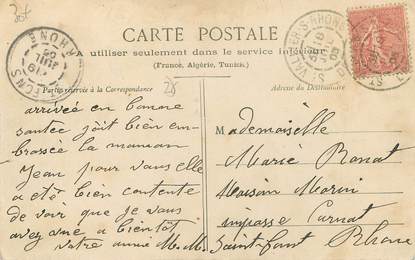 CARTE POSTALE
A utiliser seulement dans le service intérieur
(France, Algérie, Tunisie.)
Partie réservée à la Correspondance
Adresse du Destinataire
arrivée en bonne
santee soit bien em-
brassée la maman
Jean pour vous elle
a etè bien contente
de voir que je vous
avez ame a bientot
votre amie M. M.
Mademoiselle
Marie Ronat
Maison Morin
impasse Carnat
Saint-Font Rhone
ST VALLIER-S-RHONE
RHONE